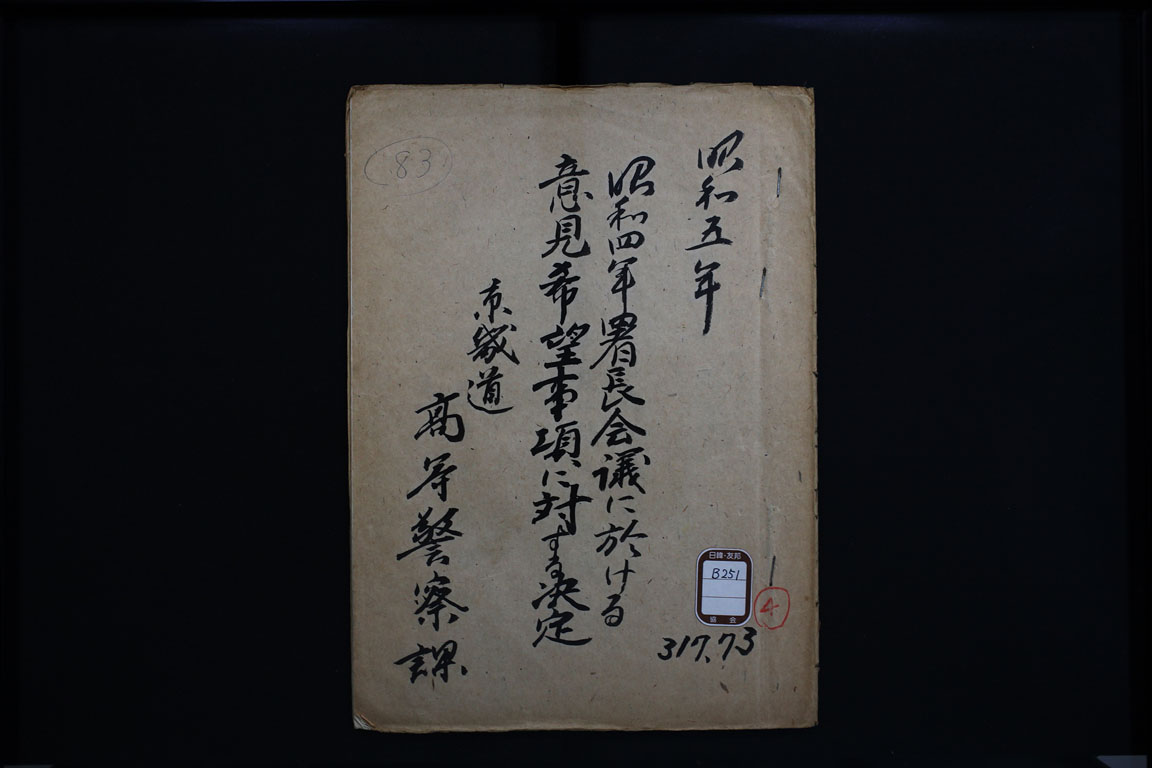 昭和五年
昭和四年署長会議に於ける
意見希望事項に対する決定
京畿道
高等警察課
83
日韓・友邦
B251
協会
4
317.73